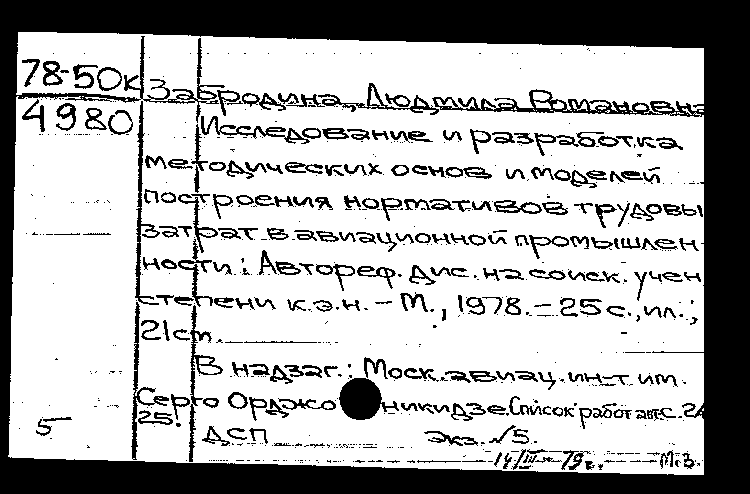 78-50к
4980
Забродина, Людмила Романовна
Исследование и разработка
методических основ и моделей
построения нормативов трудовы
затрат в авиационной промышлен-
ности: Автореф. дис. на соиск. учен
степени к.э.н. – М., 1978. – 25 с., ил.;
21 см.
В надзаг.: Моск. авиац. ин-т им.
Серго Орджоникидзе. Список работ авт. с. 24
25.
5
ДСП Экз. №5.
14/III-79г. М.З.